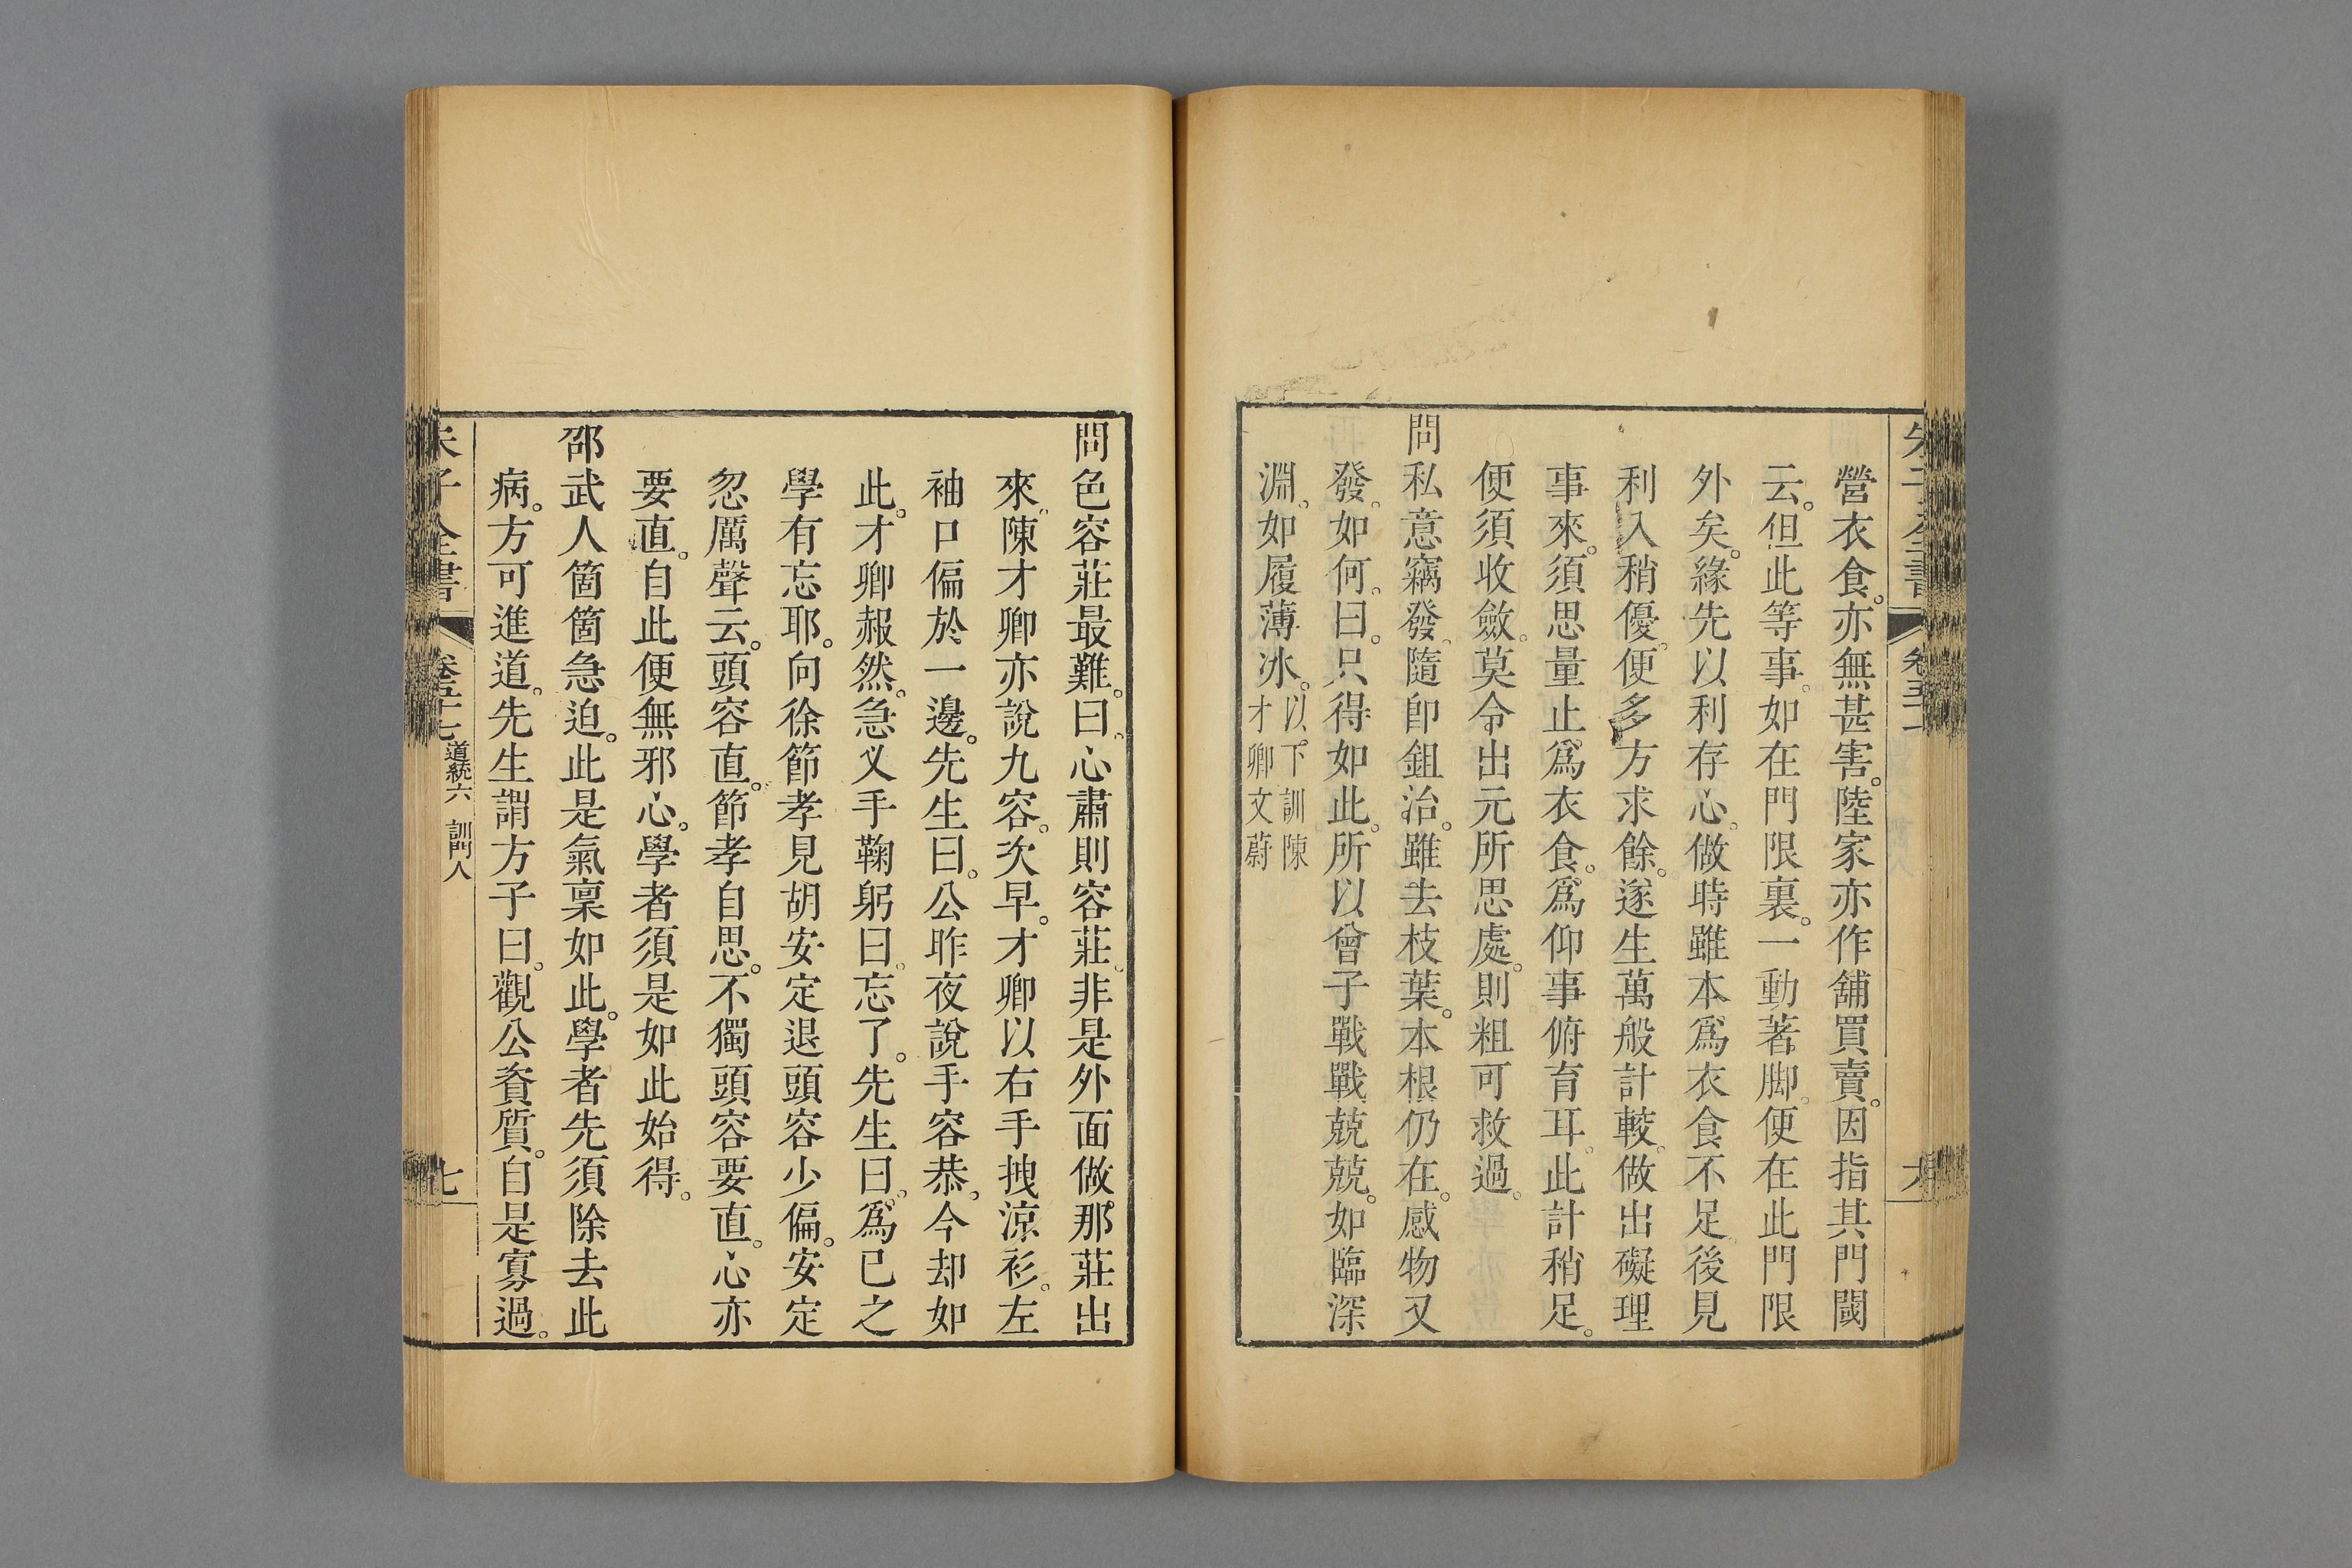 營衣食。亦無甚害。陸家亦作舖買賣。因指其門閾
云。但此等事。如在門限裏。一動著脚。便在此門限
外矣。緣先以利存心。做時雖本爲衣食不足後見
利入稍優。便多方求餘。遂生萬般計較。做出礙理
事來。須思量止爲衣食。爲仰事俯育耳。此計稍足。
便須收斂。莫令出元所思處。則粗可救過。
問私意竊發。隨卽鉏治。雖去枝葉。本根仍在。感物又
發。如何。曰。只得如此。所以曾子戰戰兢兢。如臨深
淵。如履薄冰。以下訓陳
才卿文蔚
問色容莊最難。曰。心肅則容莊。非是外面做那莊出
來。陳才卿亦說九容。次早。才卿以右手拽涼衫。左
袖口偏於一邊。先生曰。公昨夜說手容恭。今却如
此。才卿赧然。急叉手鞠躬曰。忘了。先生曰。爲已之
學有忘耶。向徐節孝見胡安定退頭容少偏。安定
忽厲聲云。頭容直。節孝自思。不獨頭容要直。心亦
要直。自此便無邪心。學者須是如此始得。
邵武人箇箇急迫。此是氣稟如此。學者先須除去此
病。方可進道。先生謂方子曰。觀公資質。自是寡過。
朱子全書
道統六 訓門人
七